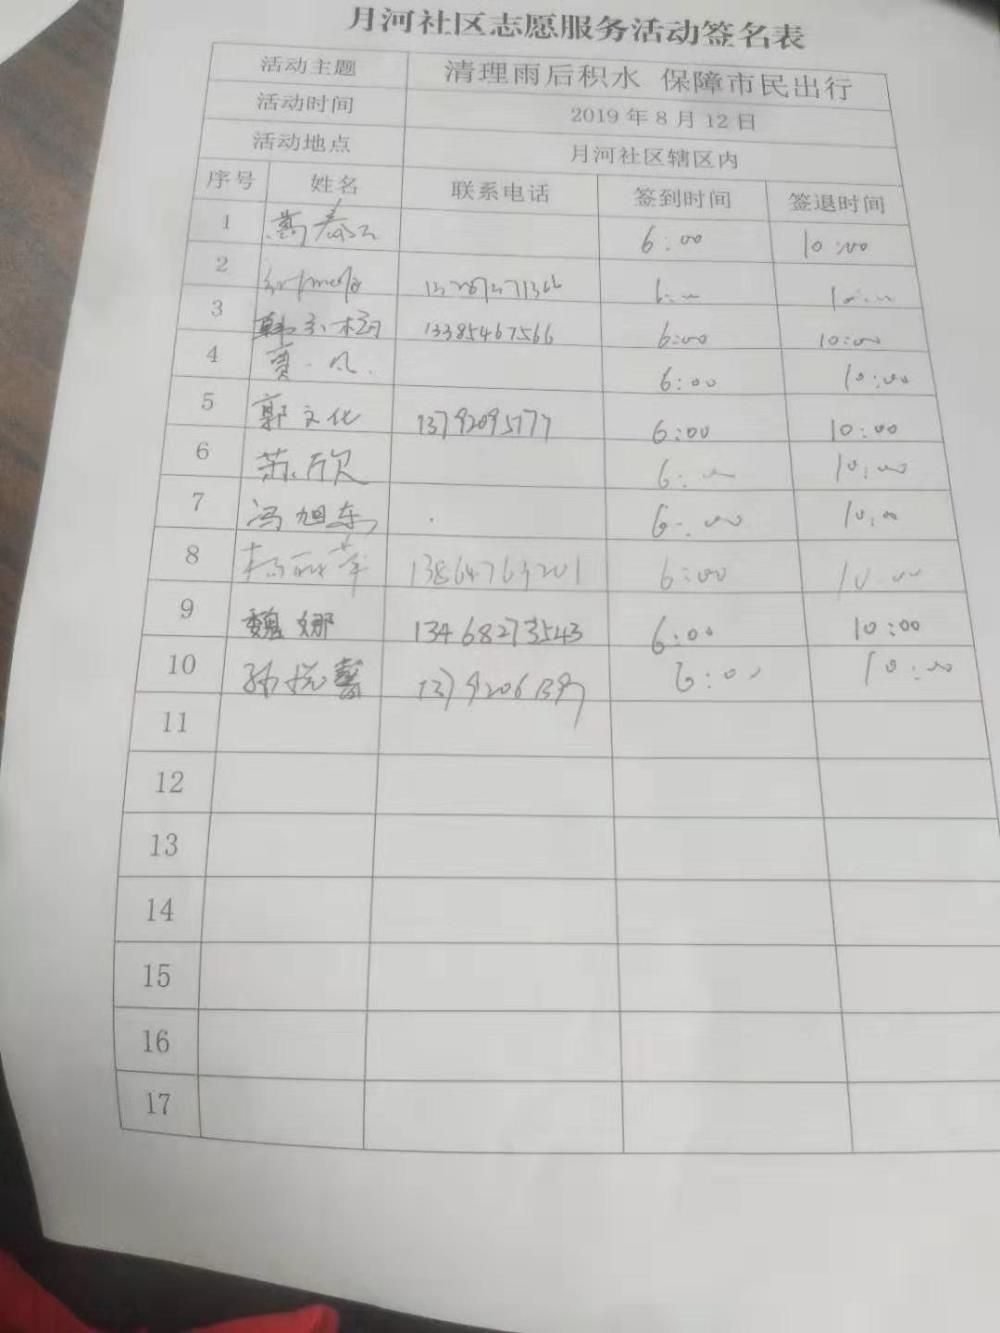 月河社区志愿服务活动签名表
活动主题 清理雨后积水 保障市民出行
活动时间 2019 年 8 月 12 日
活动地点 月河社区辖区内
序号 姓名 联系电话 签到时间 签退时间
1 6:00 10:00
2 6:00 10:00
3 13385467566 6:00 10:00
4 6:00 10:00
5 郭文化 13792095177 6:00 10:00
6 苏欣 6:00 10:00
7 冯旭东 6:00 10:00
8 13864764201 6:00 10:00
9 魏娜 13468273543 6:00 10:00
10 孙悦馨 6:00 10:00
11
12
13
14
15
16
17